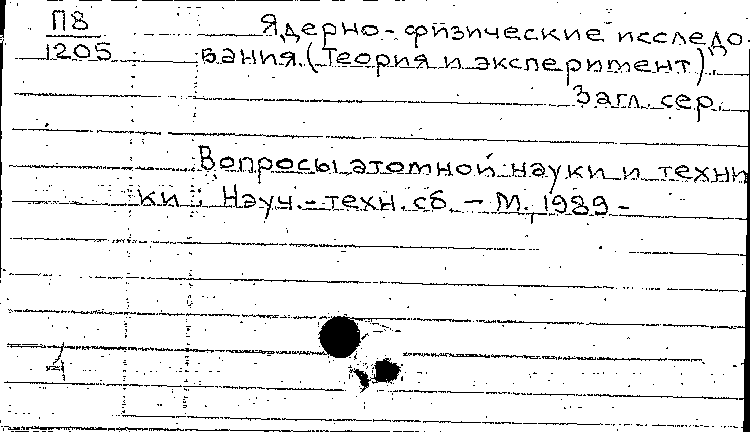 П8
1205
Ядерно-физические исследо-
вания. (Теория и эксперимент).
Загл. сер.
Вопросы атомной науки и техни
ки : Науч.-техн. сб. - М., 1989 -